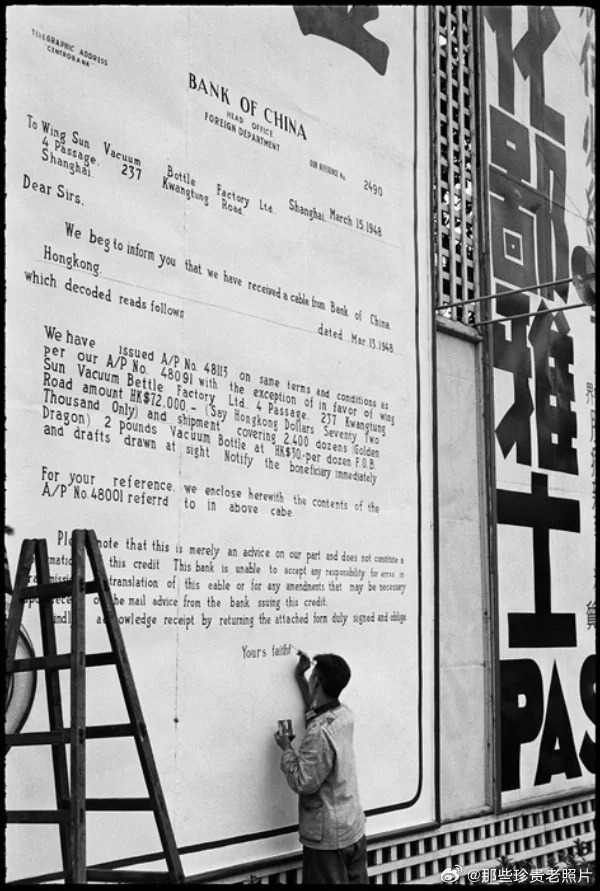 TELEGRAPHIC ADDRESS
"CENTROBANK"
BANK OF CHINA
HEAD OFFICE
FOREIGN DEPARTMENT
OUR REFERENCE No. 2490
To Wing Sun Vacuum Bottle Factory Ltd. Shanghai, March 15. 1948
4 Passage. 237 Kwangtung Road.
Shanghai.
Dear Sirs,
We beg to inform you that we have received a cable from Bank of China.
Hongkong. dated Mar. 13. 1948
which decoded reads follows
We have issued A/P No. 48113 on same terms and conditions as
per our A/P No. 48091 with the exception of in favor of wing
Sun Vacuum Bettle Factory Ltd. 4 Passage. 237 Kwangtung
Road amount HK$72,000.- (Say Hongkong Dollars Seventy Two
Thousand Only) and shipment covering 2,400 dozens (Golden
Dragon) 2 pounds Vacuum Bottle at HK$30.- per dozen F.O.B.
and drafts drawn at sight Notify the beneficiary immediately
For your reference, we enclose herewith the contents of the
A/P No. 48001 referrd to in above cabe
note that this is merely an advice on our part and does not constitute a
this credit This bank is unable to accept any responsibility for erros in
translation of this eable or for any amendments that may be necessary
the mail advice from the bank ssuing this credit.
acknowledge receipt by returning the attached form duly signed and oblige
Yours faithf
雅
士
PAS
@那些珍贵老照片